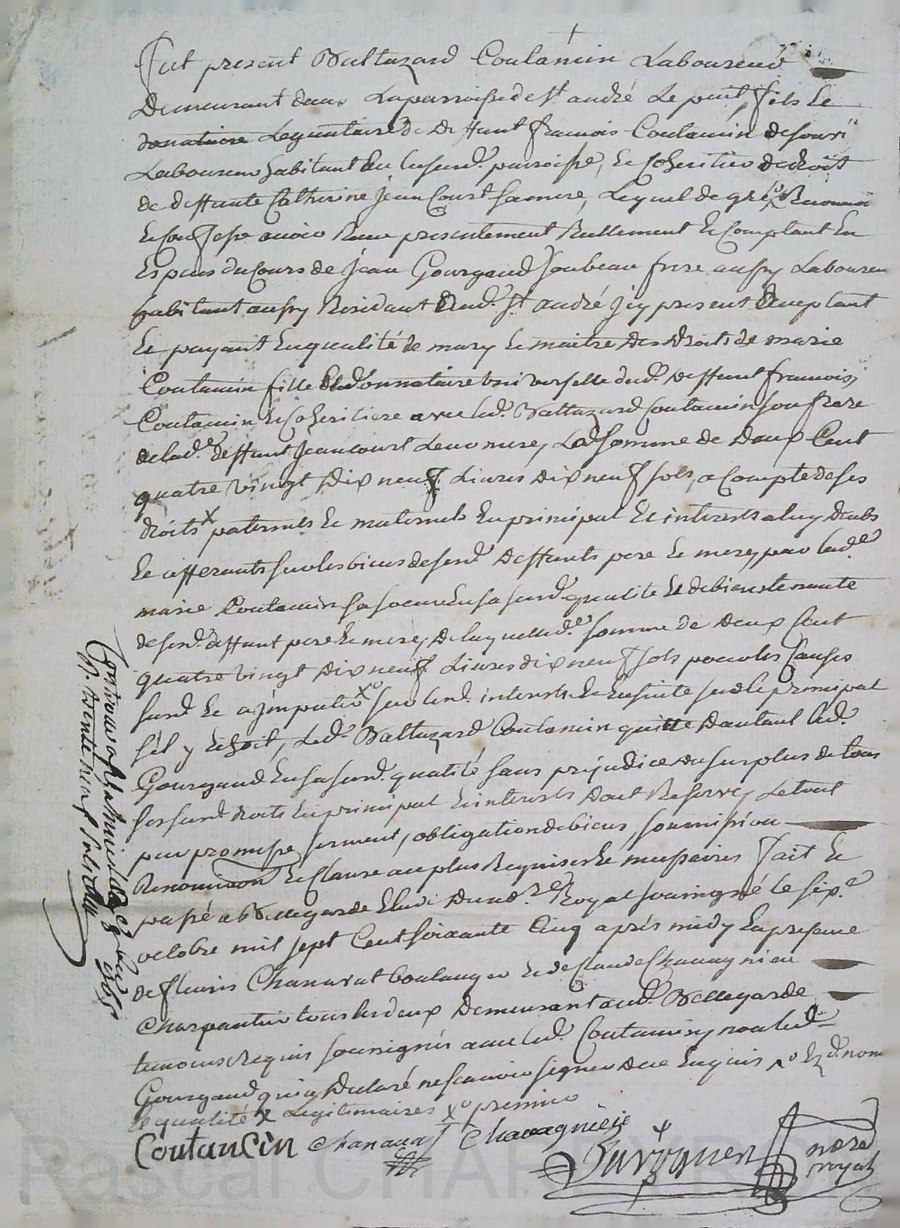 Fut present Baltazard Coutancin Laboureur
Demeurant dans Laparroisse de St andré Le puit, fils Le
donataire Legataire de Deffunt francois Coutancin
Laboureur habitant en lasusd. parroisse, Et Coheritier de droit
de deffunte Catherine Jean Court Samere, Lequel de gré
Et Confesse avoir Receu presentement Reellement Et Comptant En
Especes du Cours de Jean Gourgaud Sonbeau frere aussy Laboureur
habitant aussy Residant aud. St. andré Jcy present acceptant
Et payant Enqualité de mary Et maitre des Droits de marie
Coutancin fille donnataire universelle dud. Deffunt francois
Coutancin Et Coheritiere avec led. Baltazard Coutancin Son frere
de lad. deffunte Jeancourt Leur mere, La Somme de Deux Cent
quatre vingt Dix neuf Livres Dix neuf sols, a Compte de ses
droits x paternels Et maternels En principal Et interets a luy deubs
Et afferants sur les biens de sesd. Deffunts pere Et mere, par lad.
marie Coutancin Sa soeur En sa susd. qualité Et de bientenante
de sesd. deffunt pere Et mere, De laquelle d. Somme de Deux Cent
quatre vingt Dix neuf Livres dix neuf sols pour les Causes
susd. Et a jmputer sur lesd. interets Et Ensuite sur le principal
s'il y Echoit, Led. Baltazard Coutancin quitte Dautant led.
Gourgaud En sa susd. qualité sans prejudice du surplus de tous
ses susd. droits En principal Et interets Dont Reserve, Le tout
par promesse serment, obligation de biens soumission
Renonciation Et Clause au plus Requises Et necessaires fait Et
passé a Bellegarde Etude du nore. Royal soussigné le six.e
octobre mil sept Cent soixante Cinq après midy En presence
de fleuris Chanavat boulanger Et de Claude Chavagnieu
Charpantier tous les deux Demeurant aud. Bellegarde
temoins Requis soussignés avec led. Coutancin, non led.
Gourgaud qui a Declaré ne scavoir signer De ce Enquis
Et qualité x Legitimaires
Coutancin Chanavat Chavagnieu
nore
royal